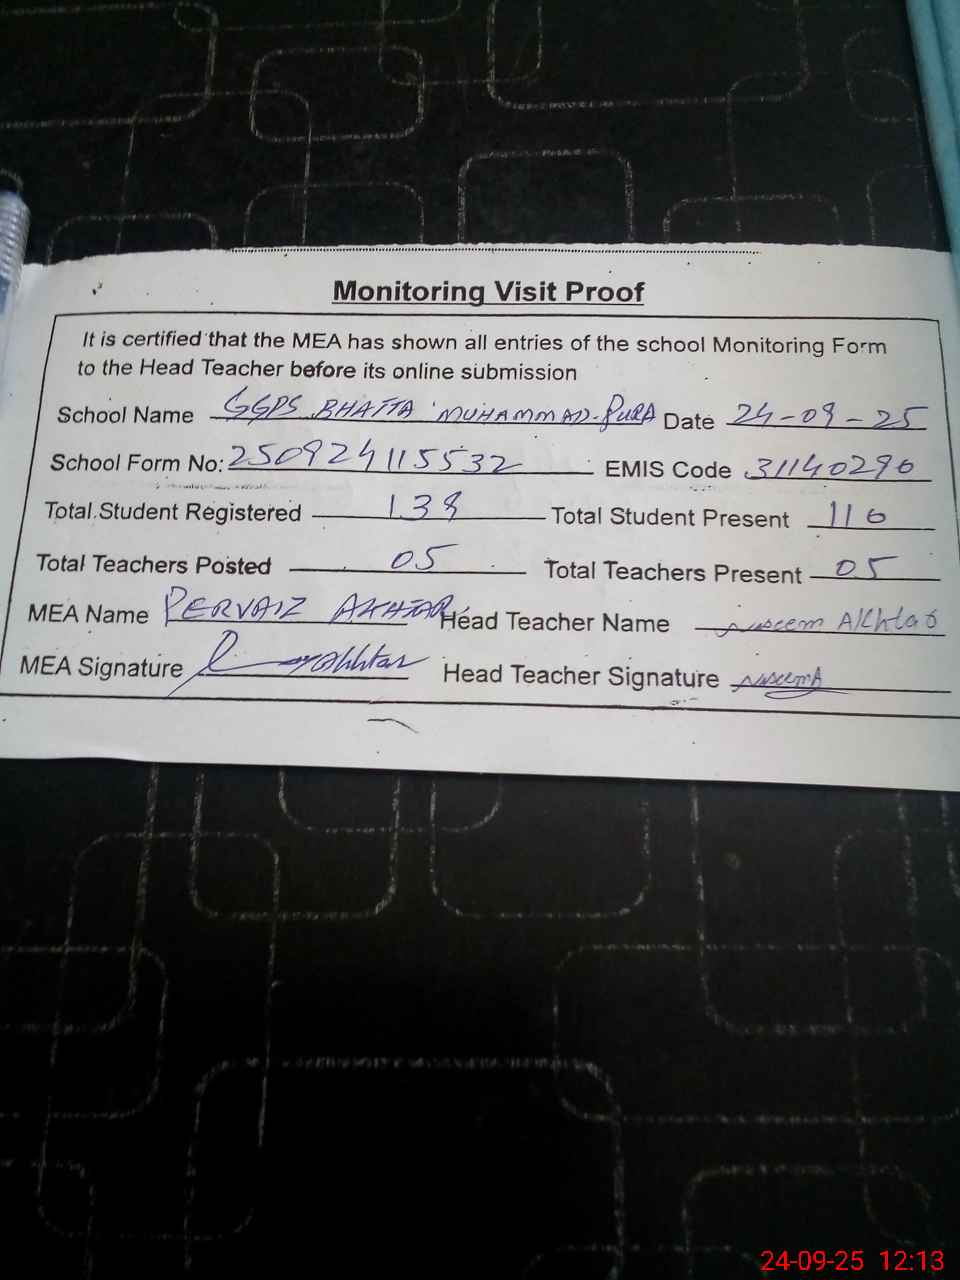 Monitoring Visit Proof
It is certified that the MEA has shown all entries of the school Monitoring Form
to the Head Teacher before its online submission
School Name GGPS BHATTA MUHAMMAD-PURA Date 24-09-25
School Form No: 250924115532 EMIS Code 31140296
Total Student Registered 138 Total Student Present 116
Total Teachers Posted 05 Total Teachers Present 05
MEA Name PERVAIZ AKHTAR Head Teacher Name Naseem Akhtar
MEA Signature Akhtar Head Teacher Signature NaseemA
24-09-25 12:13